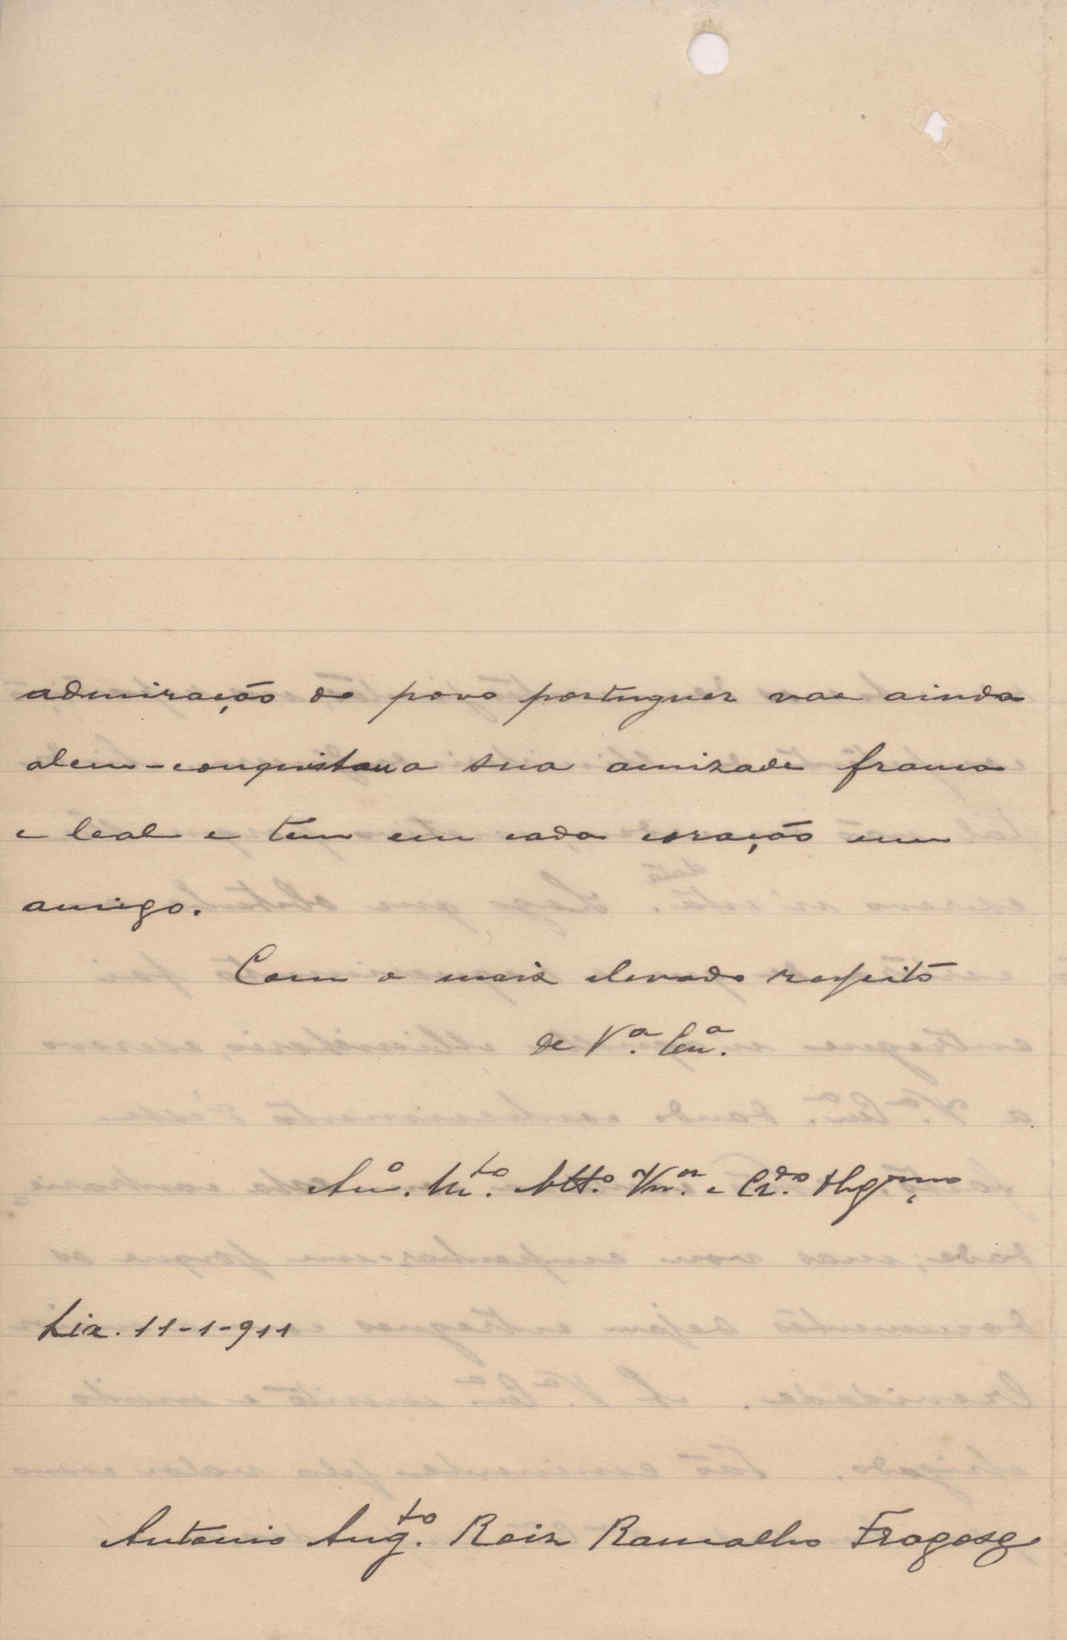 admiração do povo portuguez vae ainda
alem - conquistou a sua amizade franca
e leal e tem em cada coração um
amigo.
Com o mais elevado respeito
de V.ª Ex.ª
Am.º M.to Att.º Vn.or e Cr.do Obg.mo
Lix. 11-1-911
Antonio Aug.to Roiz Ramalho Fragoso